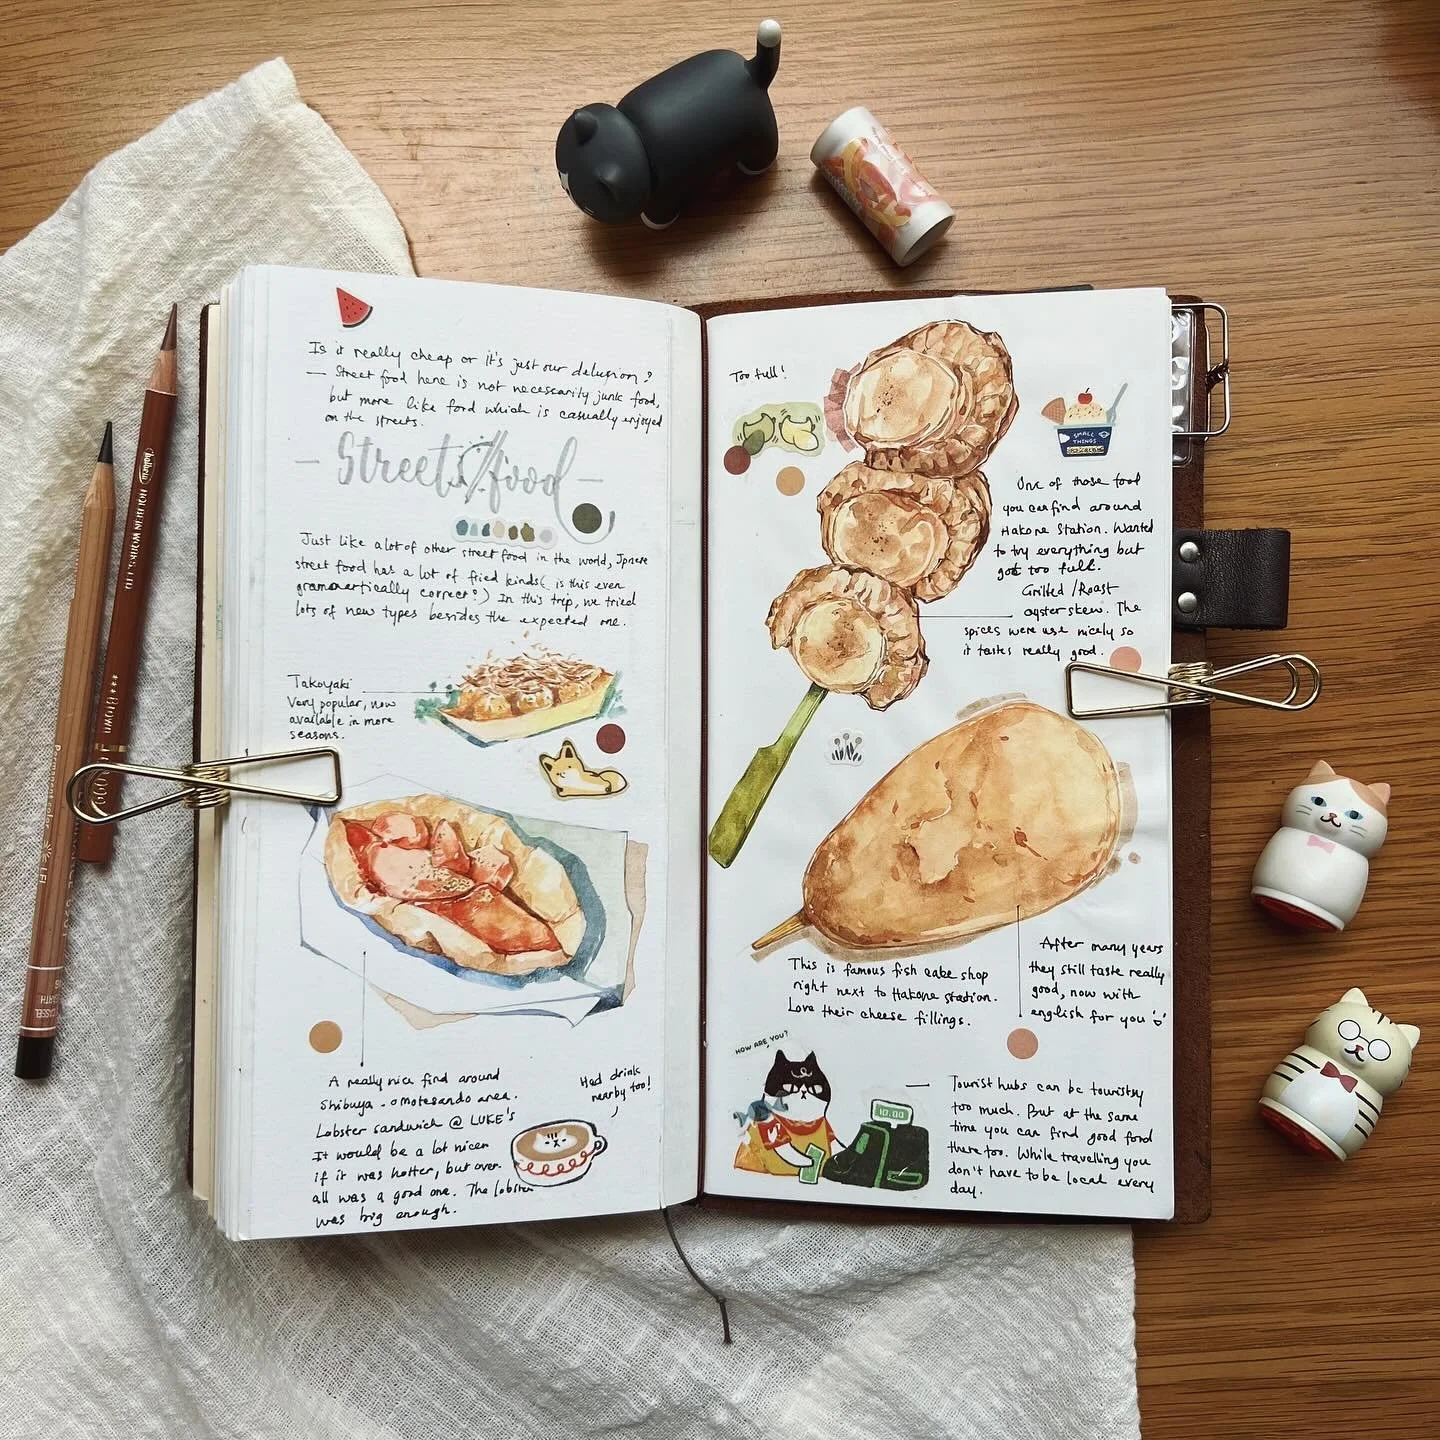 Is it really cheap or it's just our delusion?
— Street food here is not necessarity junk food,
but more like food which is casually enjoyed
on the streets.
— Street food —
Just like a lot of other street food in the world, Jpnese
street food has a lot of fried kinds( is this even
grammertically correct?) In this trip, we tried
lots of new types besides the expected one.
Takoyaki
Very popular, now
available in more
seasons.
A really nice find around
Shibuya - omotesando area.
Lobster sandwich @ LUKE's
It would be a lot nicer
if it was hotter, but over
all was a good one. The lobster
was big enough.
Had drink
nearby too!
Too full!
SMALL
THINGS
One of those food
you can find around
Hakone Station. Wanted
to try everything but
got too full.
Grilled / Roast
oyster skew. The
spices were use nicely so
it tastes really good.
This is famous fish cake shop
right next to Hakone station.
Love their cheese fillings.
After many years
they still taste really
good, now with
english for you
HOW ARE YOU?
10.00
— Tourist hubs can be touristsy
too much. But at the same
time you can find good food
there too. While travelling you
don't have to be local every
day.
HOLBEIN WORKS LTD
Brown